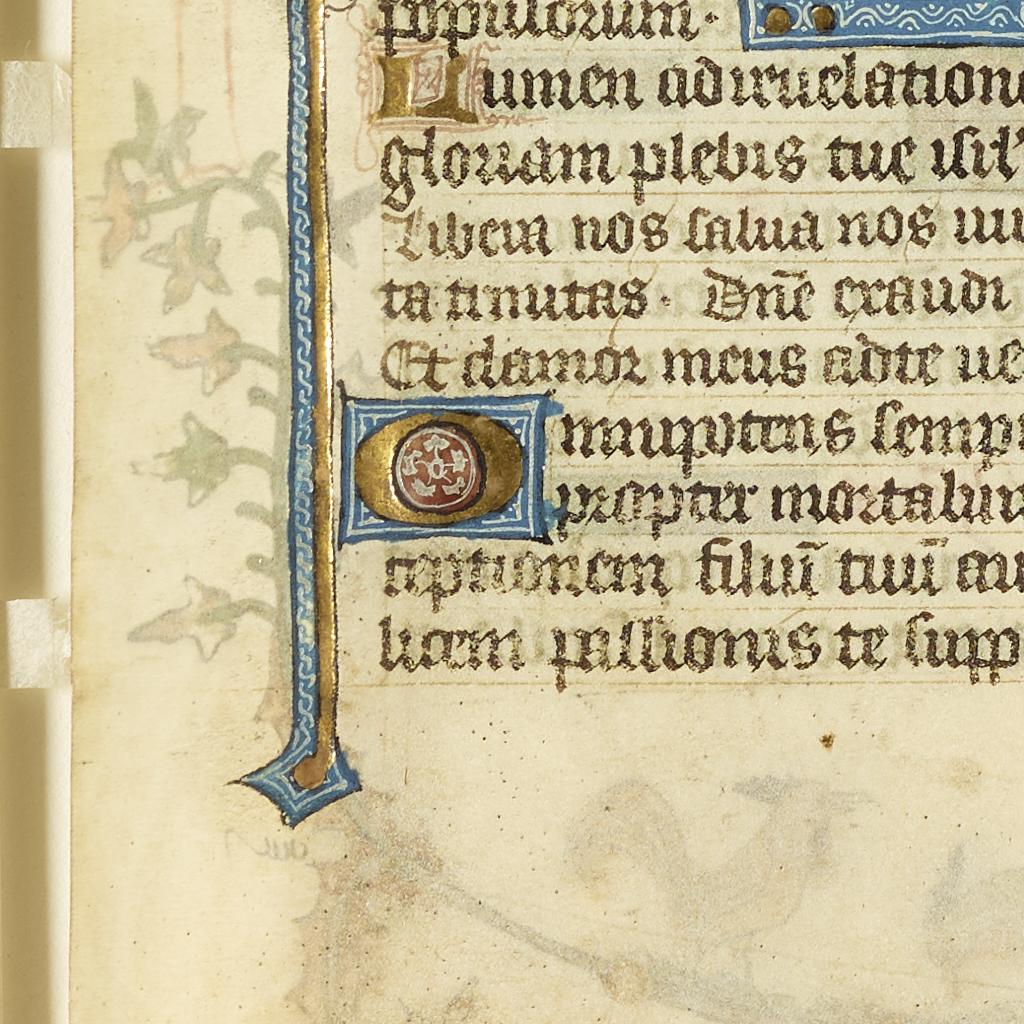 populorum.
Lumen ad reuelatione
gloriam plebis tue isrl'
Libera nos salua nos
ta trinitas. Dñe exaudi
Et clamor meus ad te ue
Omnipotens semp
propter mortaliu
ceptionem filiū tuū
licem passionis te supp